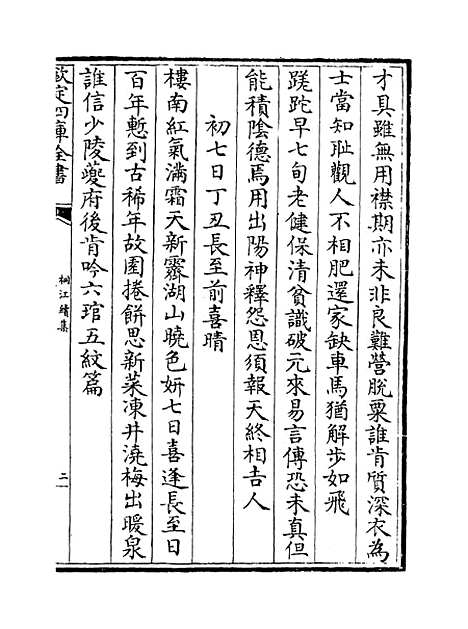 才具雖無用襟期亦未非良難營脫粟誰肯質深衣為
士當知恥觀人不相肥還家缺車馬猶解步如飛
蹉跎早七旬老健保清貧識破元來易言傳恐未真但
能積陰德焉用出陽神釋怨恩須報天終相吉人
初七日丁丑長至前喜晴
樓南紅氣滿霜天新霽湖山曉色妍七日喜逢長至日
百年慙到古稀年故園捲餅思新菜凍井澆梅出暖泉
誰信少陵夔府後肯吟六琯五紋篇
欽定四庫全書
桐江續集
二